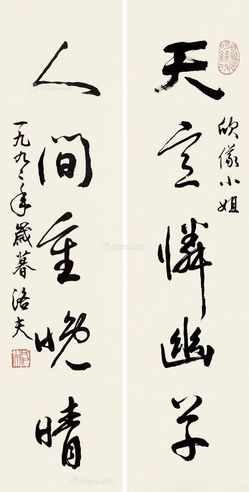 欣儀小姐
天意憐幽草
人間重晚晴
一九九二年歲暮 洛夫